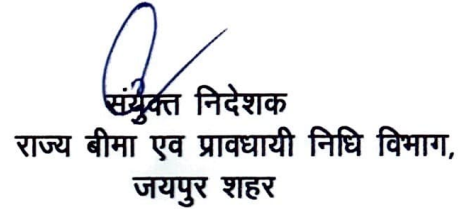 संयुक्त निदेशक
राज्य बीमा एव प्रावधायी निधि विभाग,
जयपुर शहर